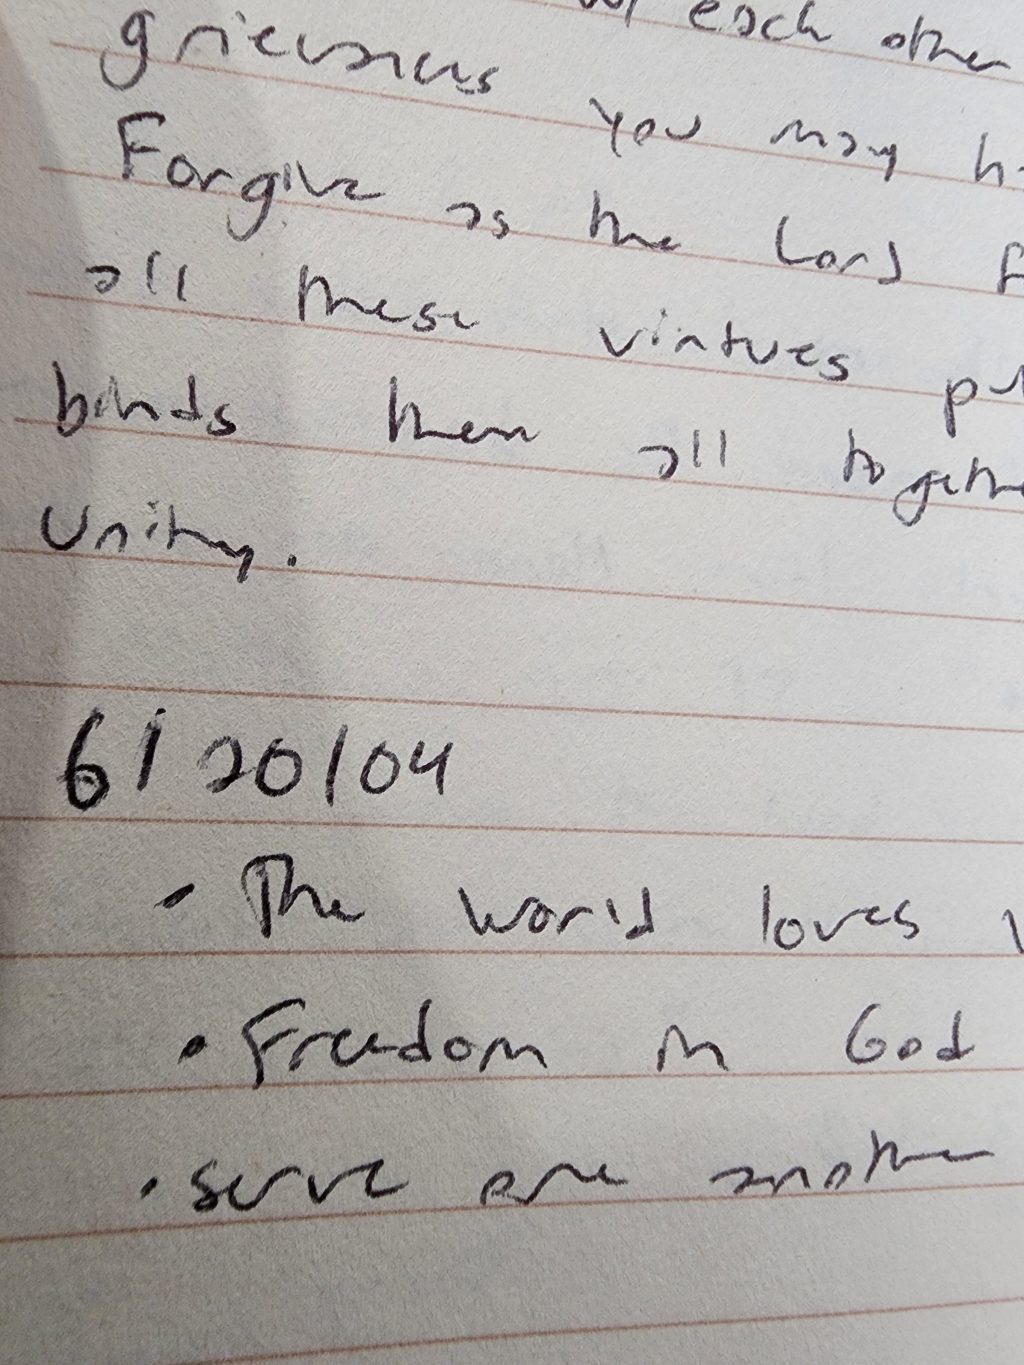 w/ each other
grievances you may h
Forgive as the Lord f
all these virtues pu
binds them all together
Unity.
6/20/04
• The world loves
• Freedom in God
• serve one another